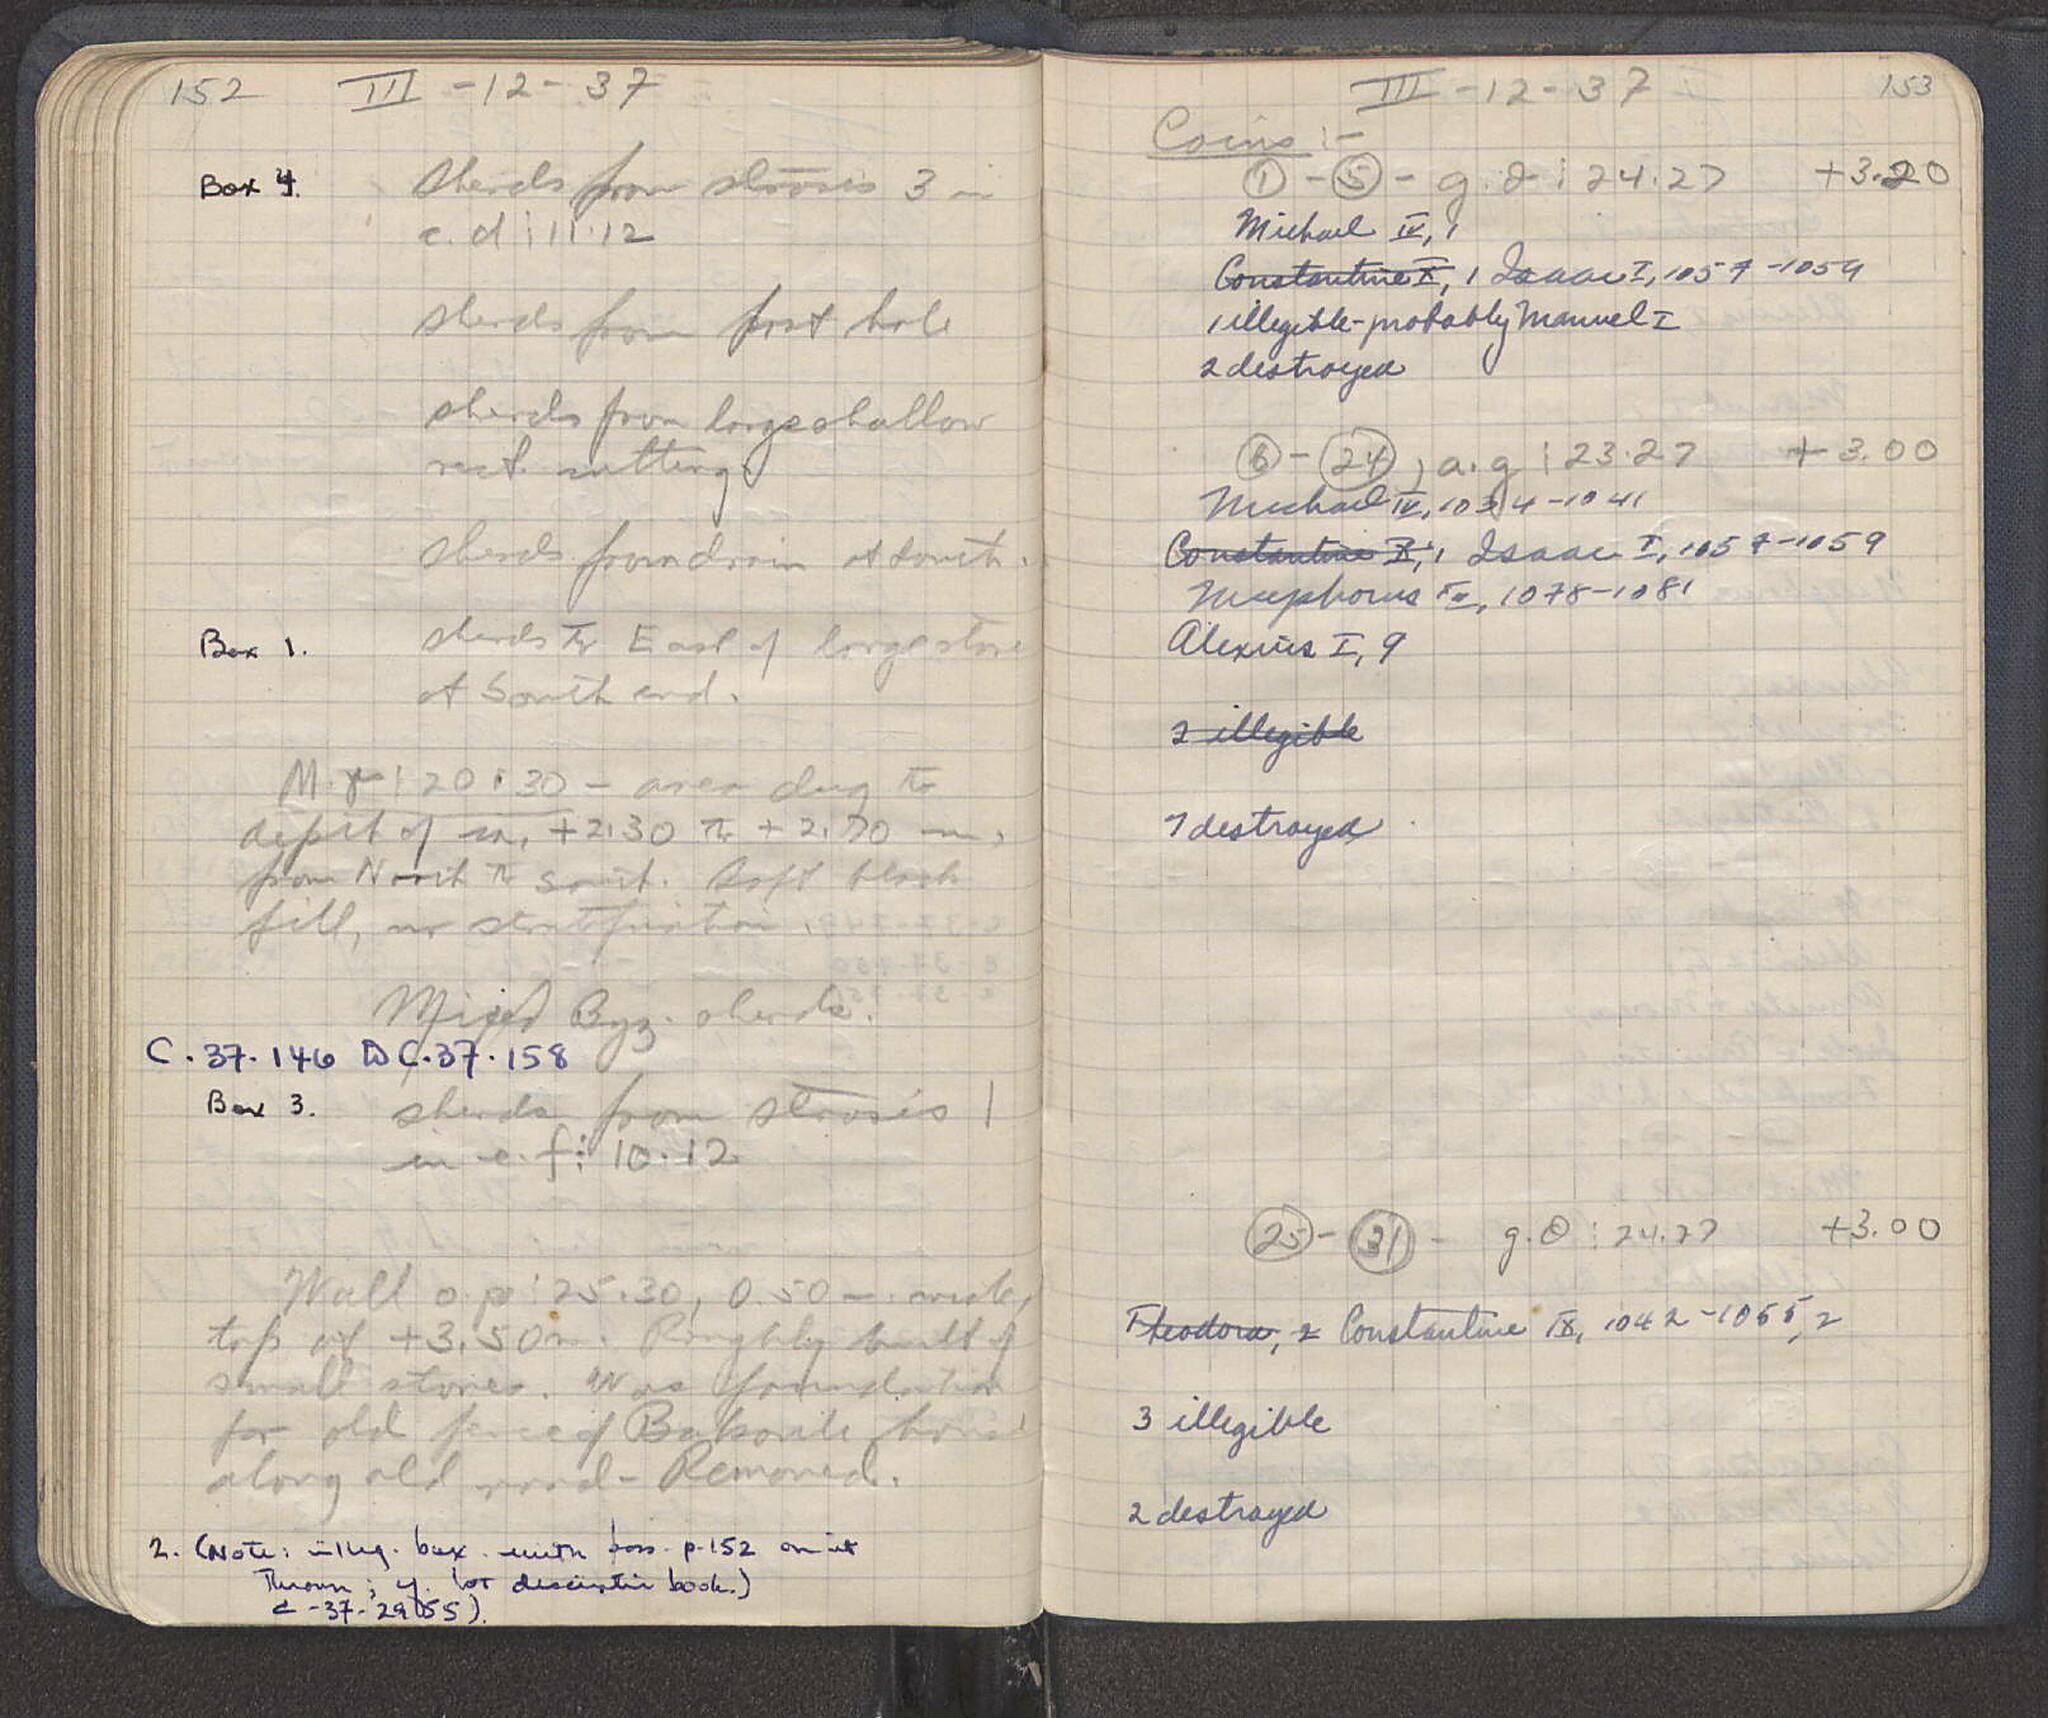 152 III - 12 - 37
Box 4. sherds from strosis 3 in
c. d : 11.12
sherds from post hole
sherds from large shallow
rect. cutting.
sherds from drain at South.
Box 1. sherds to East of large stone
at South end.
M. : 20:30 - area dug to
depth of +2.30 to +2.70 m.
from North to South. Soft black
fill, no stratification.
Mixed Byz. sherds.
C.37.146 C.37.158
Box 3. sherds from strosis 1
in e.f : 10.12
Wall o.p : 25.30, 0.50 m. wide,
top at +3.50 m. Roughly built of
small stones. Was foundation
for old fence of house
along old road - Removed.
2. (Note: box with p.152 on it
Thrown; cf. lot book.)
C-37-29 55).
III - 12 - 37 153
Coins :-
1 - 5 - g. : 24.27 +3.20
Michael IV, 1
Constantine X, 1 Isaac I, 1057-1059
1 illegible - probably Manuel I
2 destroyed
6 - 24, a.g : 23.27 +3.00
Michael IV, 1034-1041
Constantine X, 1 Isaac I, 1057-1059
Nicephorus III, 1078-1081
Alexius I, 9
2 illegible
7 destroyed
25 - 31 - g.θ : 24.27 +3.00
Theodora, 2 Constantine IX, 1042-1055, 2
3 illegible
2 destroyed